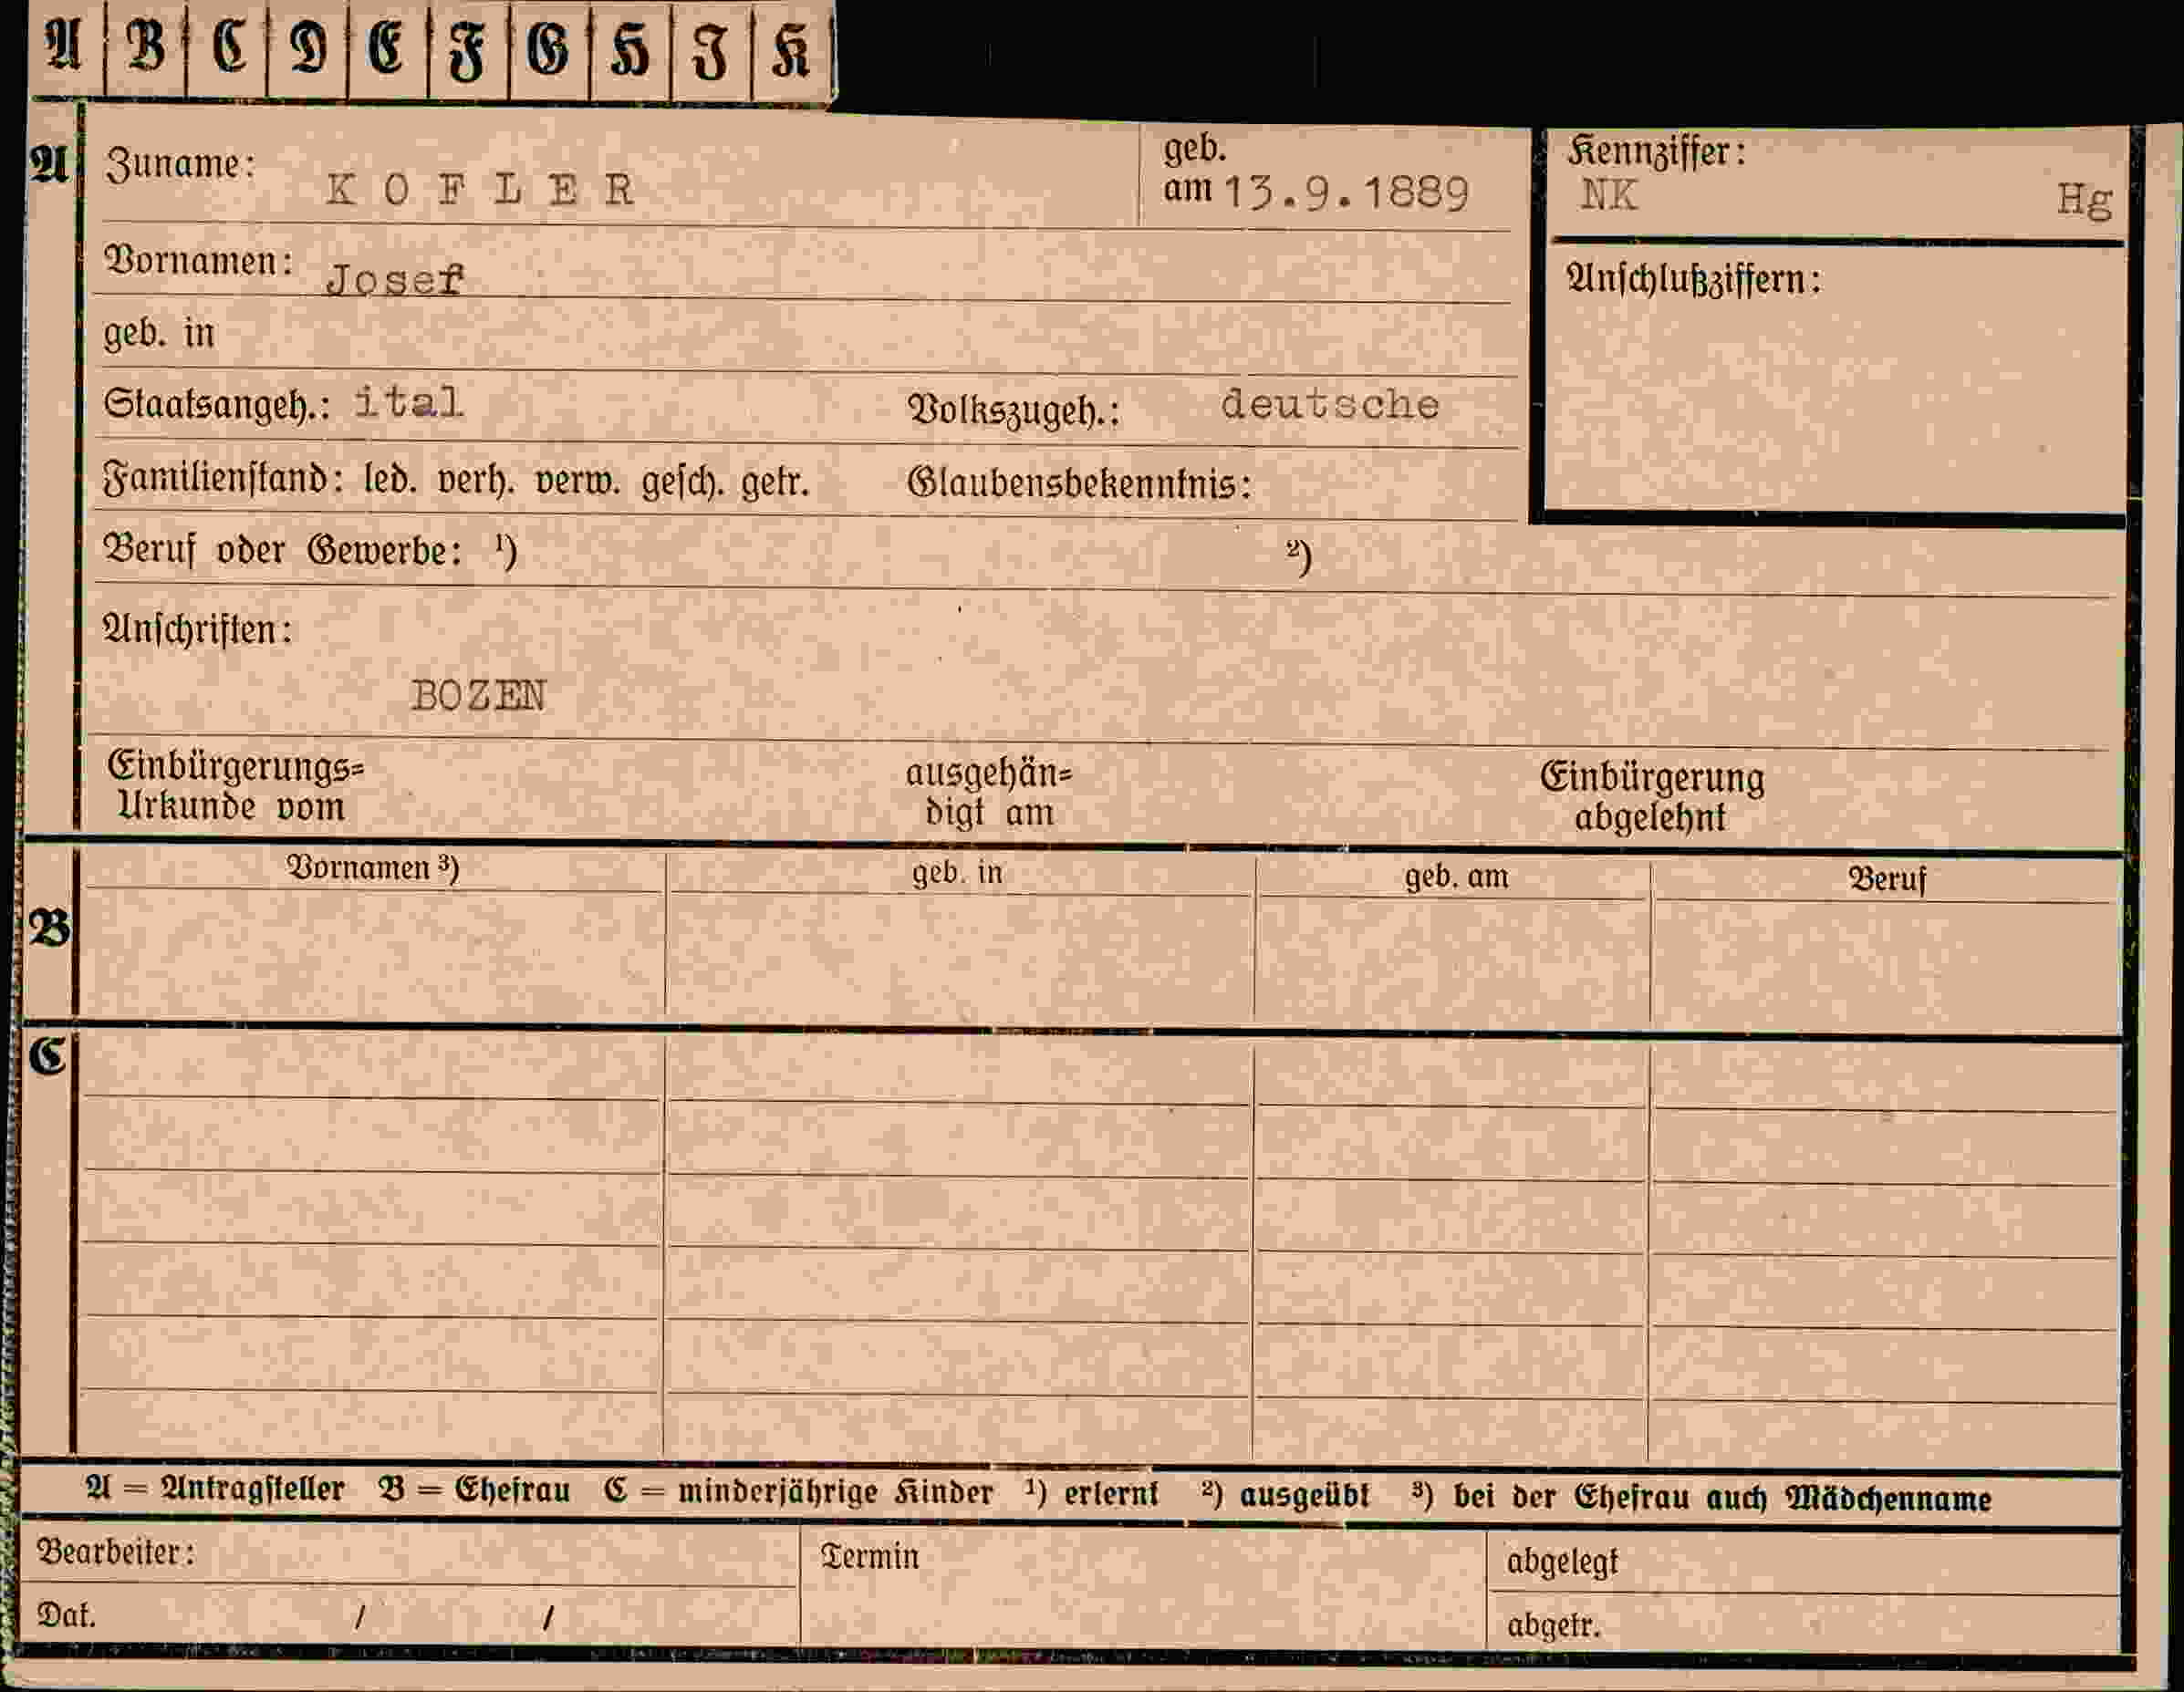 A B C D E F G H I K
A Zuname: KOFLER geb. am 13.9.1889
Kennziffer:
NK Hg
Vornamen: Josef
Anschlußziffern:
geb. in
Staatsangeh.: ital Volkszugeh.: deutsche
Familienstand: led. verh. verw. gesch. getr. Glaubensbekenntnis:
Beruf oder Gewerbe: ¹) ²)
Anschriften:
BOZEN
Einbürgerungs= ausgehän= Einbürgerung
Urkunde vom digt am abgelehnt
Vornamen ³) geb. in geb. am Beruf
B
C
A = Antragsteller B = Ehefrau C = minderjährige Kinder ¹) erlernt ²) ausgeübt ³) bei der Ehefrau auch Mädchenname
Bearbeiter: Termin abgelegt
Dat. / / abgetr.